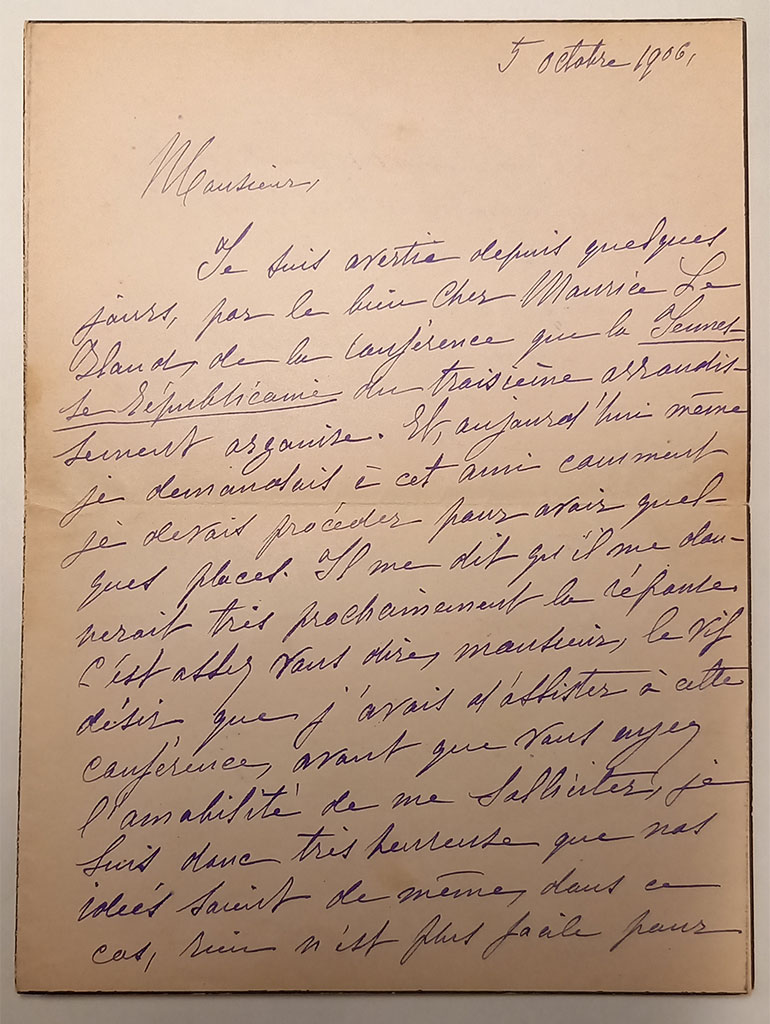 5 octobre 1906,
Monsieur,
Je suis avertie depuis quelques
jours, par le bien cher Maurice Le
Bland, de la conférence que la Jeunes-
se Républicaine du troisième arrondis-
sement organise. Et, aujourd'hui même
je demandais à cet ami comment
je devais procéder pour avoir quel-
ques places. Il me dit qu'il me don-
nerait très prochainement la réponse
c'est assez vous dire, monsieur, le vif
désir que j'avais d'assister à cette
conférence, avant que vous ayez
l'amabilité de me solliciter, je
suis donc très heureuse que nos
idées soient de même, dans ce
cas, rien n'est plus facile pour